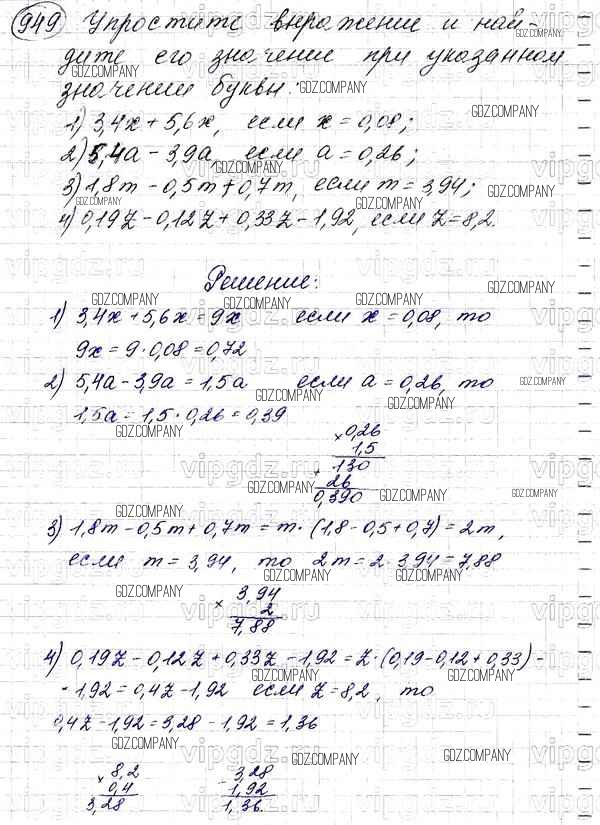 949 Упростите выражение и най-
дите его значение при указанном
значении буквы:
1) 3,4x + 5,6x, если x = 0,08;
2) 5,4a - 3,9a, если a = 0,26;
3) 1,8m - 0,5m + 0,7m, если m = 3,94;
4) 0,19z - 0,12z + 0,33z - 1,92, если z = 8,2.
Решение:
1) 3,4x + 5,6x = 9x если x = 0,08, то
9x = 9·0,08 = 0,72
2) 5,4a - 3,9a = 1,5a если a = 0,26, то
1,5a = 1,5·0,26 = 0,39
× 0,26
1,5
+ 130
26
0,390
3) 1,8m - 0,5m + 0,7m = m·(1,8 - 0,5 + 0,7) = 2m,
если m = 3,94, то 2m = 2·3,94 = 7,88
× 3,94
2
7,88
4) 0,19z - 0,12z + 0,33z - 1,92 = z·(0,19 - 0,12 + 0,33) -
- 1,92 = 0,4z - 1,92 если z = 8,2, то
0,4z - 1,92 = 3,28 - 1,92 = 1,36
× 8,2 - 3,28
0,4 1,92
3,28 1,36
GDZ.COMPANY
vipgdz.ru